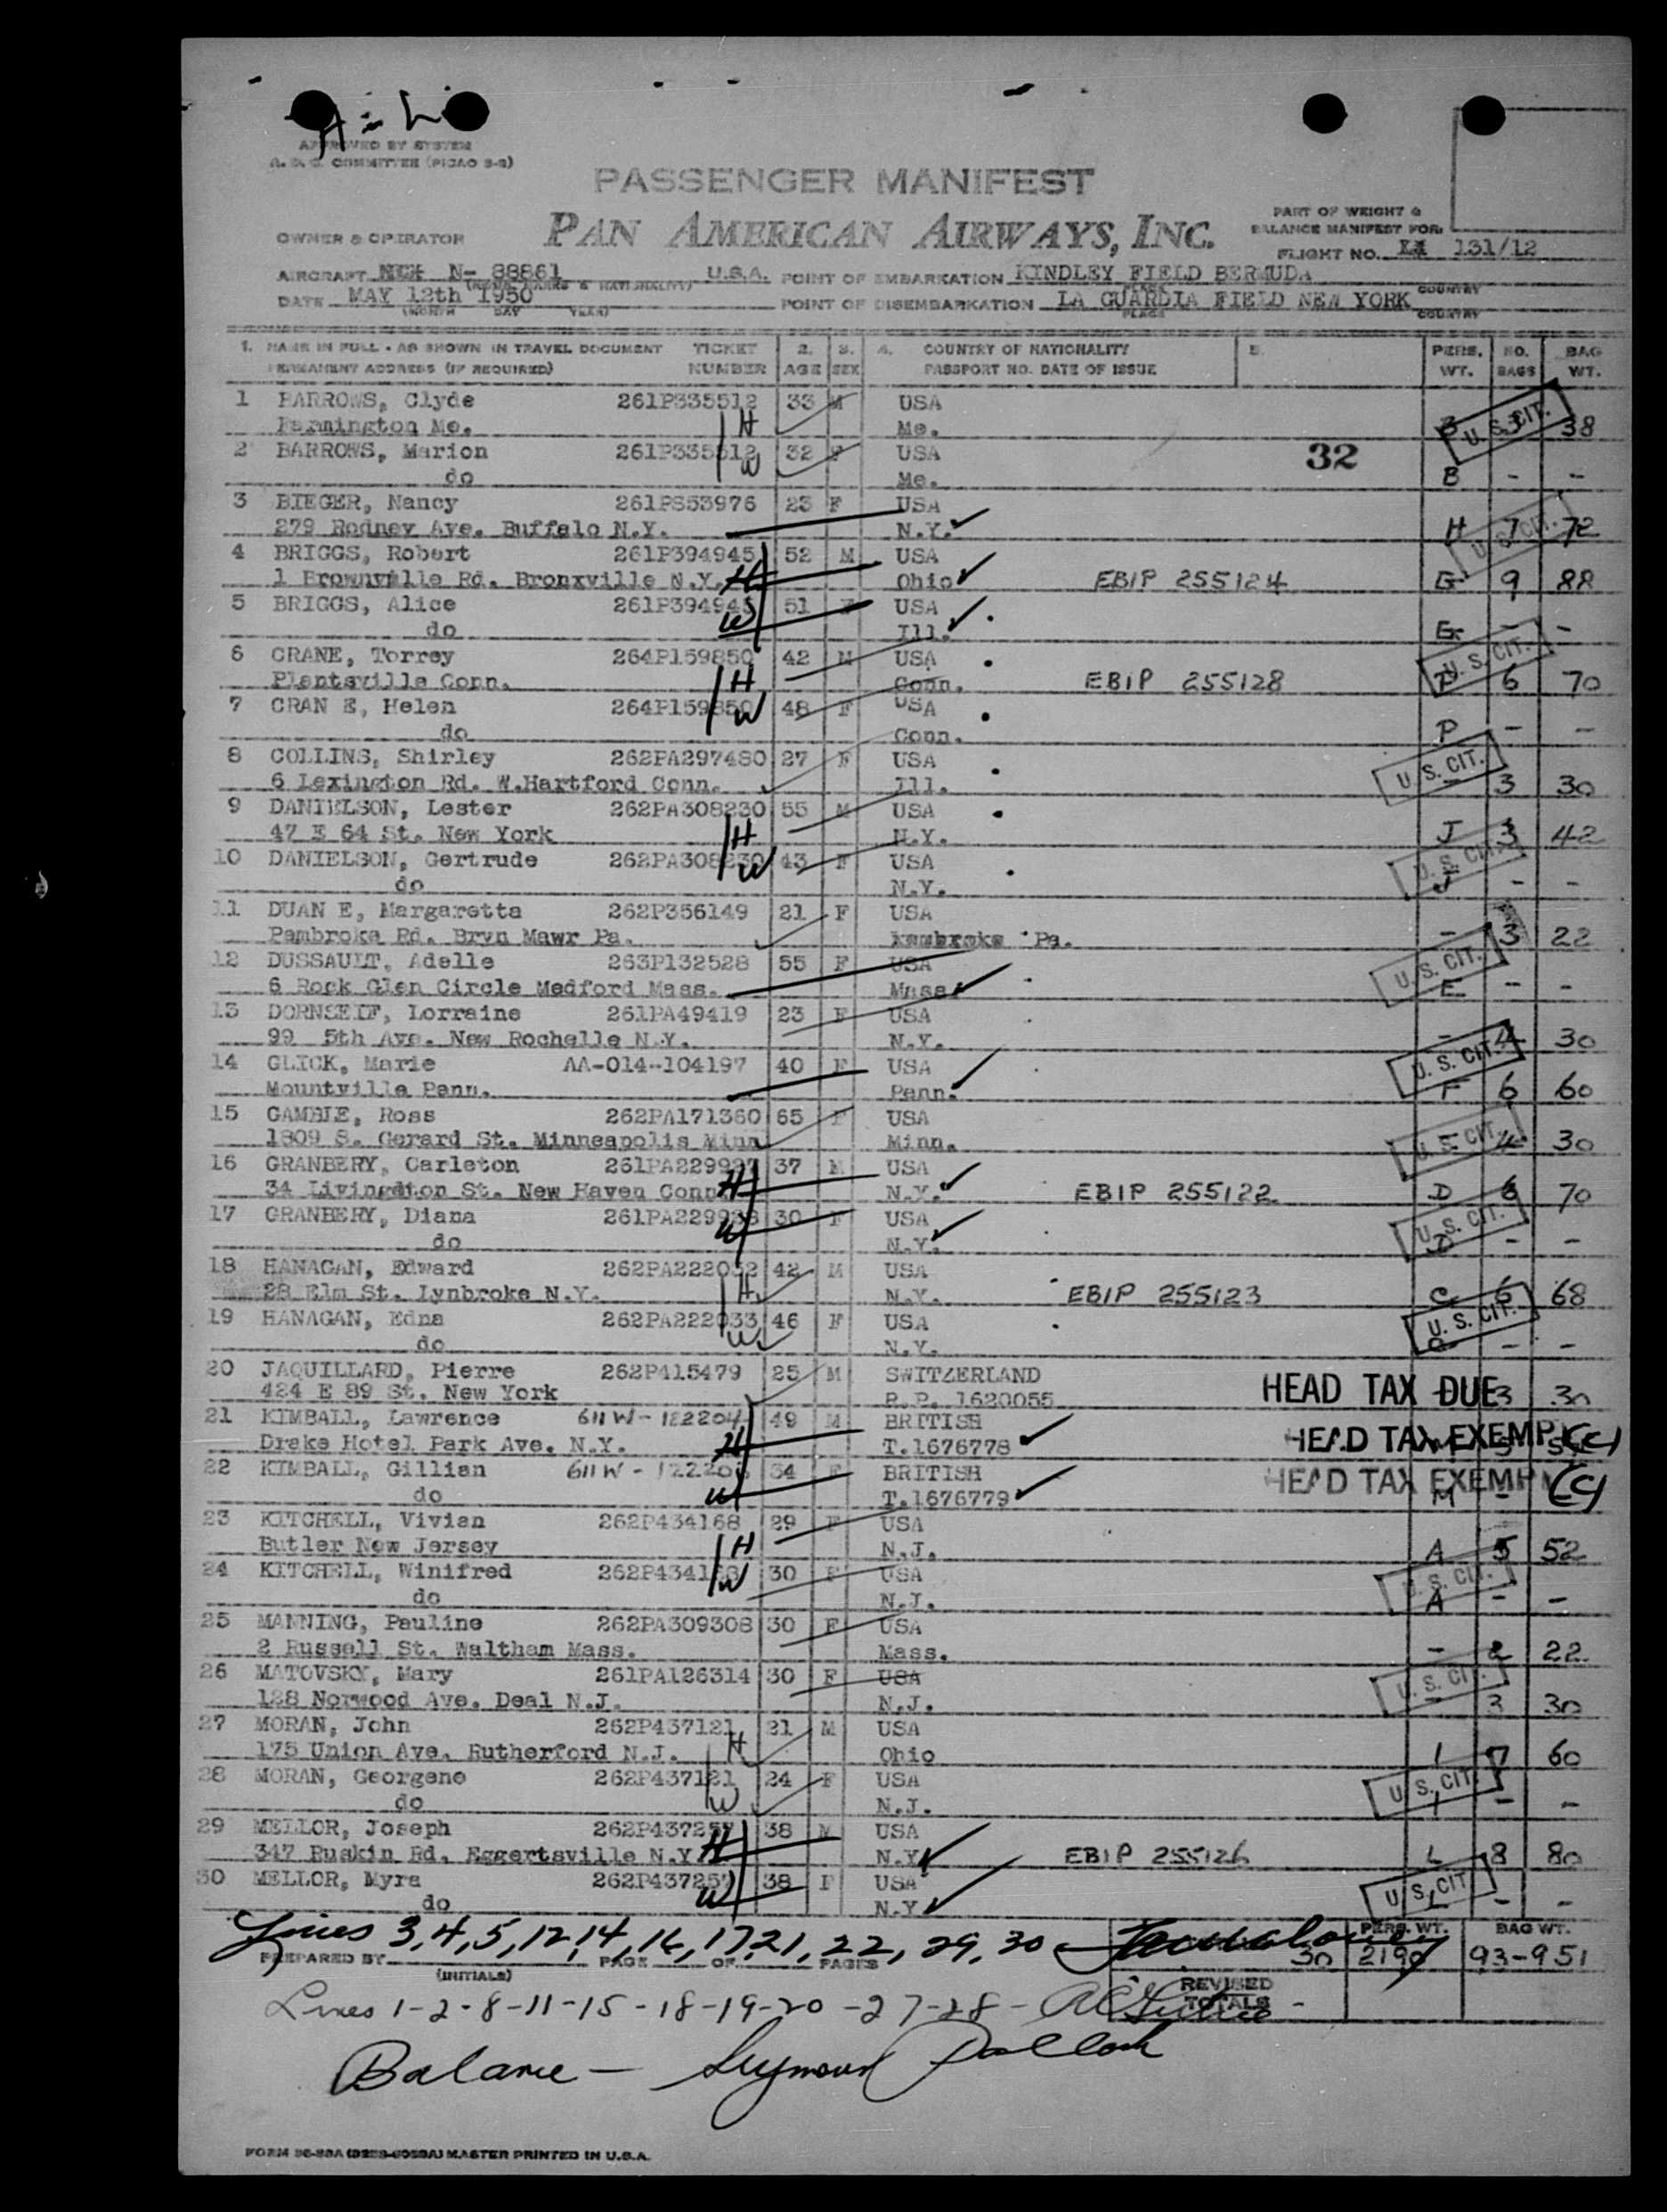 A = L
APPROVED BY SYSTEM
A. D. C. COMMITTEE (PICAO 5-2)
PASSENGER MANIFEST
PAN AMERICAN AIRWAYS, INC.
PART OF WEIGHT &
BALANCE MANIFEST FOR:
OWNER & OPERATOR
FLIGHT NO. 131/12
AIRCRAFT N- 88861 U.S.A. POINT OF EMBARKATION KINDLEY FIELD BERMUDA
DATE MAY 12th 1950 POINT OF DISEMBARKATION LA GUARDIA FIELD NEW YORK
(MONTH DAY YEAR) PLACE COUNTRY
1. NAME IN FULL - AS SHOWN IN TRAVEL DOCUMENT TICKET 2. 3. 4. COUNTRY OF NATIONALITY 5. PERS. NO. BAG
PERMANENT ADDRESS (IF REQUIRED) NUMBER AGE SEX PASSPORT NO. DATE OF ISSUE WT. BAGS WT.
1 BARROWS, Clyde 261P335512 33 M USA U.S. CIT.
Farmington Me. H Me. B 3 38
2 BARROWS, Marion 261P335512 32 F USA 32
do W Me. B - -
3 BIEGER, Nancy 261PS53976 23 F USA
279 Rodney Ave. Buffalo N.Y. N.Y. H 7 72 U.S. CIT.
4 BRIGGS, Robert 261P394945 52 M USA
1 Brownville Rd. Bronxville N.Y. H Ohio EBIP 255124 G 9 88
5 BRIGGS, Alice 261P394945 51 F USA
do W Ill. G - -
6 CRANE, Torrey 264P159850 42 M USA U.S. CIT.
Plantsville Conn. H Conn. EBIP 255128 P 6 70
7 CRAN E, Helen 264P159850 48 F USA
do W Conn. P - -
8 COLLINS, Shirley 262PA297480 27 F USA U.S. CIT.
6 Lexington Rd. W.Hartford Conn. Ill. - 3 30
9 DANIELSON, Lester 262PA308230 55 M USA
47 E 64 St. New York H N.Y. J 3 42
10 DANIELSON, Gertrude 262PA308230 43 F USA U.S. CIT.
do W N.Y. J - -
11 DUAN E, Margaretta 262P356149 21 F USA
Pembroke Rd. Bryn Mawr Pa. Pa. - 3 22
12 DUSSAULT, Adelle 263P132528 55 F USA U.S. CIT.
6 Rock Glen Circle Medford Mass. Mass. E - -
13 DORNSEIF, Lorraine 261PA49419 23 F USA
99 5th Ave. New Rochelle N.Y. N.Y. - 4 30
14 GLICK, Marie AA-014-104197 40 F USA U.S. CIT.
Mountville Penn. Penn. F 6 60
15 GAMBLE, Ross 262PA171360 65 F USA
1809 S. Gerard St. Minneapolis Minn Minn. - 4 30 U.S. CIT.
16 GRANBERY, Carleton 261PA229937 37 M USA
34 Livingdton St. New Haven Conn. H N.Y. EBIP 255122 D 6 70
17 GRANBERY, Diana 261PA229938 30 F USA U.S. CIT.
do W N.Y. D - -
18 HANAGAN, Edward 262PA222032 42 M USA
28 Elm St. Lynbroke N.Y. H N.Y. EBIP 255123 C 6 68
19 HANAGAN, Edna 262PA222033 46 F USA U.S. CIT.
do W N.Y. C - -
20 JAQUILLARD, Pierre 262P415479 25 M SWITZERLAND
424 E 89 St. New York P.P. 1620055 HEAD TAX DUE 3 30
21 KIMBALL, Lawrence 611W-122204 49 M BRITISH
Drake Hotel Park Ave. N.Y. H T.1676778 HEAD TAX EXEMPT (C)
22 KIMBALL, Gillian 611W-122205 34 F BRITISH
do W T.1676779 HEAD TAX EXEMPT (C) M -
23 KITCHELL, Vivian 262P434168 29 F USA
Butler New Jersey H N.J. A 5 52
24 KITCHELL, Winifred 262P434168 30 F USA U.S. CIT.
do W N.J. A - -
25 MANNING, Pauline 262PA309308 30 F USA
2 Russell St. Waltham Mass. Mass. - 2 22
26 MATOVSKY, Mary 261PA126314 30 F USA U.S. CIT.
128 Norwood Ave. Deal N.J. N.J. - 3 30
27 MORAN, John 262P437121 21 M USA
175 Union Ave. Rutherford N.J. H Ohio I 7 60
28 MORAN, Georgene 262P437121 24 F USA U.S. CIT.
do W N.J. I - -
29 MELLOR, Joseph 262P437257 38 M USA
347 Ruskin Rd. Eggertsville N.Y. H N.Y. EBIP 255126 L 8 80
30 MELLOR, Myra 262P437257 38 F USA U.S. CIT.
do W N.Y. L - -
Lines 3,4,5,12,14,16,17,21,22,29,30 PERS. WT. BAG WT.
PREPARED BY PAGE OF PAGES 30 2190 93-951
(INITIALS)
REVISED
TOTALS -
Lines 1-2-8-11-15-18-19-20-27-28-
Balance - Seymour Pollock
FORM MASTER PRINTED IN U.S.A.